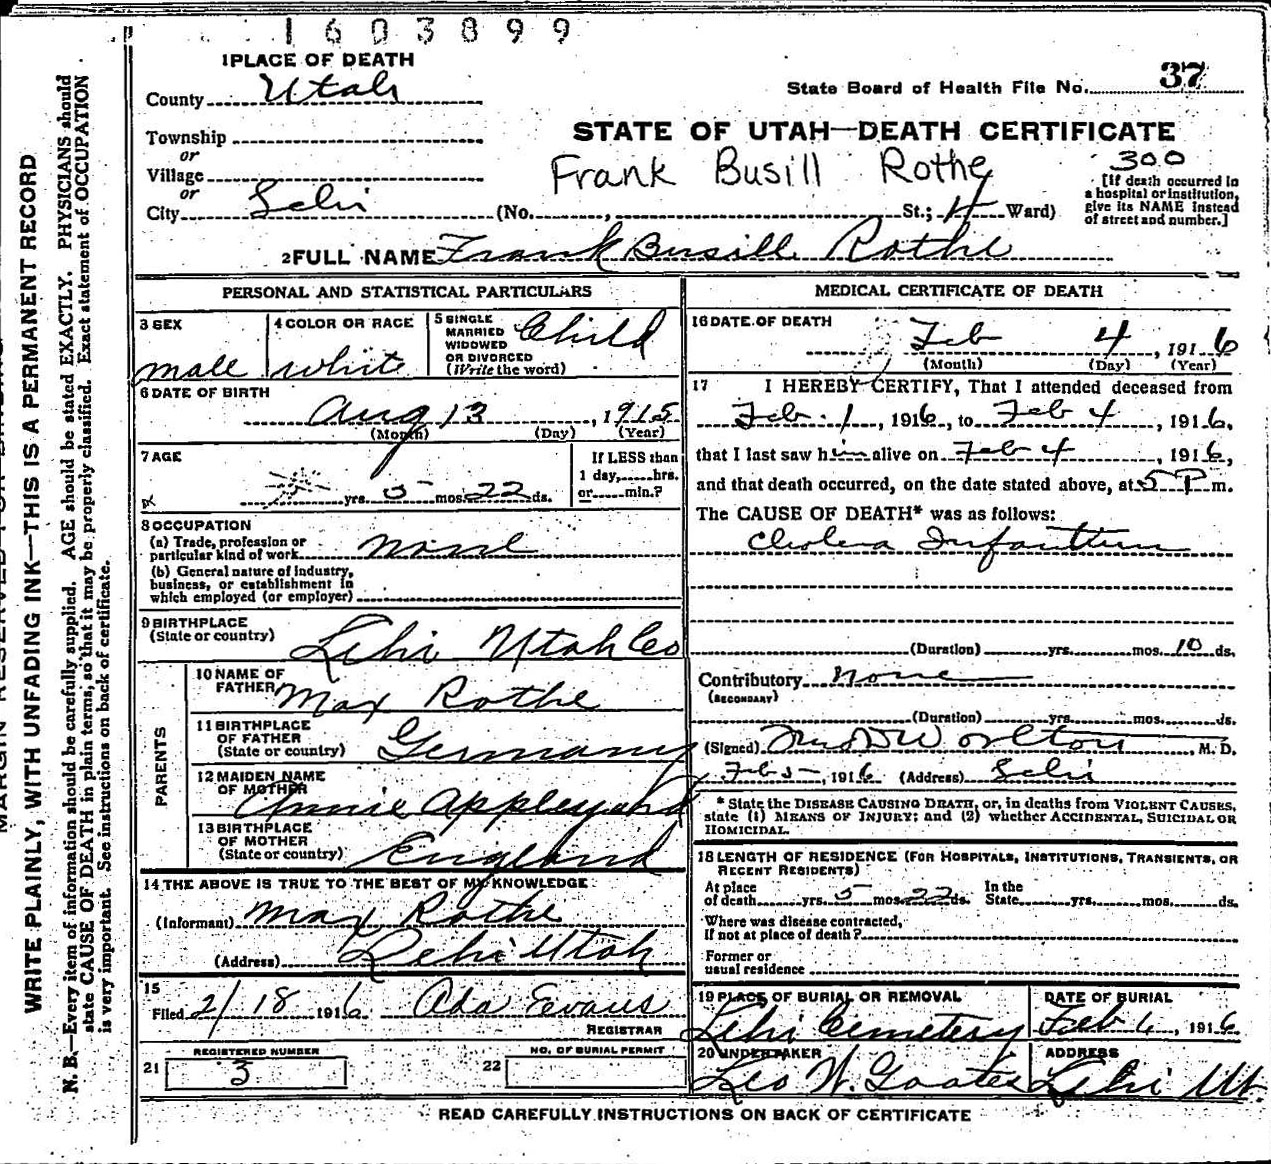 1603899
1 PLACE OF DEATH
County Utah
State Board of Health File No. 37
Township
or
Village
or
City Lehi
STATE OF UTAH—DEATH CERTIFICATE
Frank Busill Rothe
300
[If death occurred in
a hospital or institution,
give its NAME instead
of street and number.]
(No. , St.; 4 Ward)
2 FULL NAME Frank Busill Rothe
PERSONAL AND STATISTICAL PARTICULARS
3 SEX
male
4 COLOR OR RACE
white
5 SINGLE
MARRIED
WIDOWED
OR DIVORCED
(Write the word)
Child
6 DATE OF BIRTH
Aug 13, 1915
(Month) (Day) (Year)
7 AGE
yrs. 5 mos. 22 ds.
If LESS than
1 day, hrs.
or min.?
8 OCCUPATION
(a) Trade, profession or
particular kind of work
(b) General nature of industry,
business, or establishment in
which employed (or employer)
9 BIRTHPLACE
(State or country) Lehi Utah Co
PARENTS
10 NAME OF
FATHER Max Rothe
11 BIRTHPLACE
OF FATHER
(State or country) Germany
12 MAIDEN NAME
OF MOTHER
Annie Appleyard
13 BIRTHPLACE
OF MOTHER
(State or country) England
14 THE ABOVE IS TRUE TO THE BEST OF MY KNOWLEDGE
(Informant) Max Rothe
(Address) Lehi Utah
15
Filed 2/18 1916 Ada Evans
REGISTRAR
21 REGISTERED NUMBER
3
22 NO. OF BURIAL PERMIT
MEDICAL CERTIFICATE OF DEATH
16 DATE OF DEATH
Feb 4, 1916
(Month) (Day) (Year)
17 I HEREBY CERTIFY, That I attended deceased from
Feb. 1, 1916, to Feb 4, 1916,
that I last saw him alive on Feb 4, 1916,
and that death occurred, on the date stated above, at 5 P m.
The CAUSE OF DEATH* was as follows:
Cholera Infantum
(Duration) yrs. mos. 10 ds.
Contributory None
(SECONDARY)
(Duration) yrs. mos. ds.
(Signed) Worlton M. D.
Feb 5, 1916 (Address) Lehi
* State the DISEASE CAUSING DEATH, or, in deaths from VIOLENT CAUSES,
state (1) MEANS OF INJURY; and (2) whether ACCIDENTAL, SUICIDAL OR
HOMICIDAL.
18 LENGTH OF RESIDENCE (FOR HOSPITALS, INSTITUTIONS, TRANSIENTS, OR
RECENT RESIDENTS)
At place
of death yrs. 5 mos. 22 ds.
In the
State yrs. mos. ds.
Where was disease contracted,
If not at place of death?
Former or
usual residence
19 PLACE OF BURIAL OR REMOVAL
Lehi Cemetery
DATE OF BURIAL
Feb 6, 1916
20 UNDERTAKER
Leo W. Goates
ADDRESS
Lehi Ut.
READ CAREFULLY INSTRUCTIONS ON BACK OF CERTIFICATE
WRITE PLAINLY, WITH UNFADING INK—THIS IS A PERMANENT RECORD
N. B.—Every item of information should be carefully supplied. AGE should be stated EXACTLY. PHYSICIANS should
state CAUSE OF DEATH in plain terms, so that it may be properly classified. Exact statement of OCCUPATION
is very important. See instructions on back of certificate.